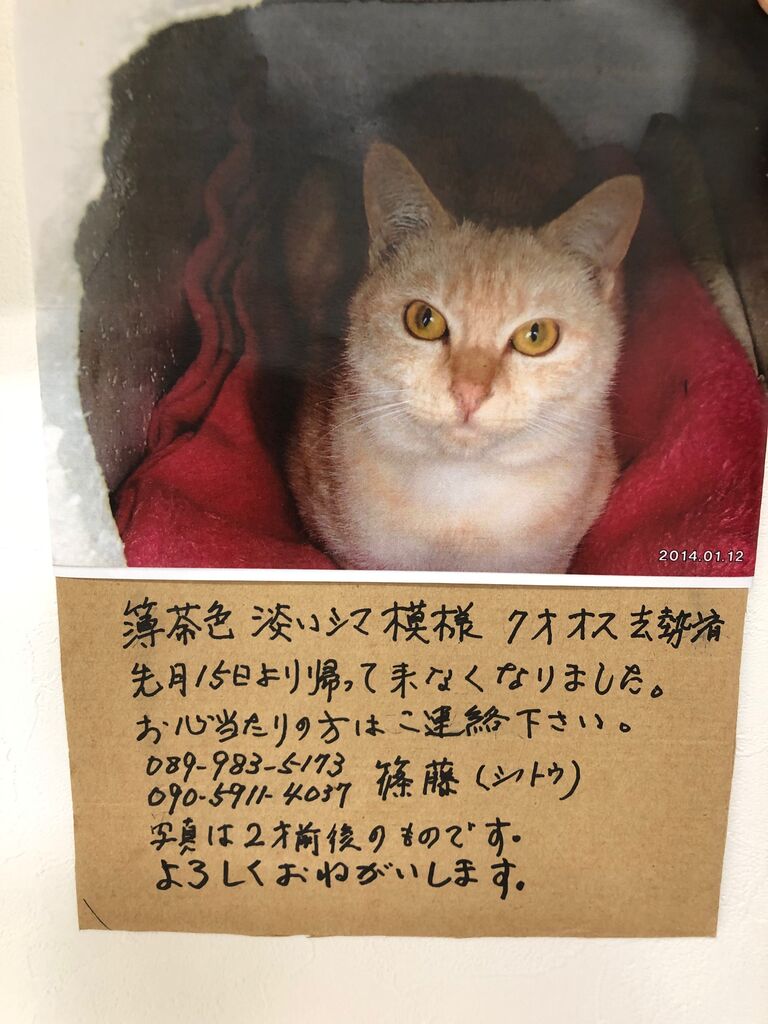 2014.01.12
簿茶色 淡いシマ模様 7才オス去勢済
先月15日より帰って来なくなりました。
お心当たりの方はご連絡下さい。
089-983-5173
090-5911-4037 篠藤(シノトウ)
写真は2才前後のものです。
よろしくおねがいします。